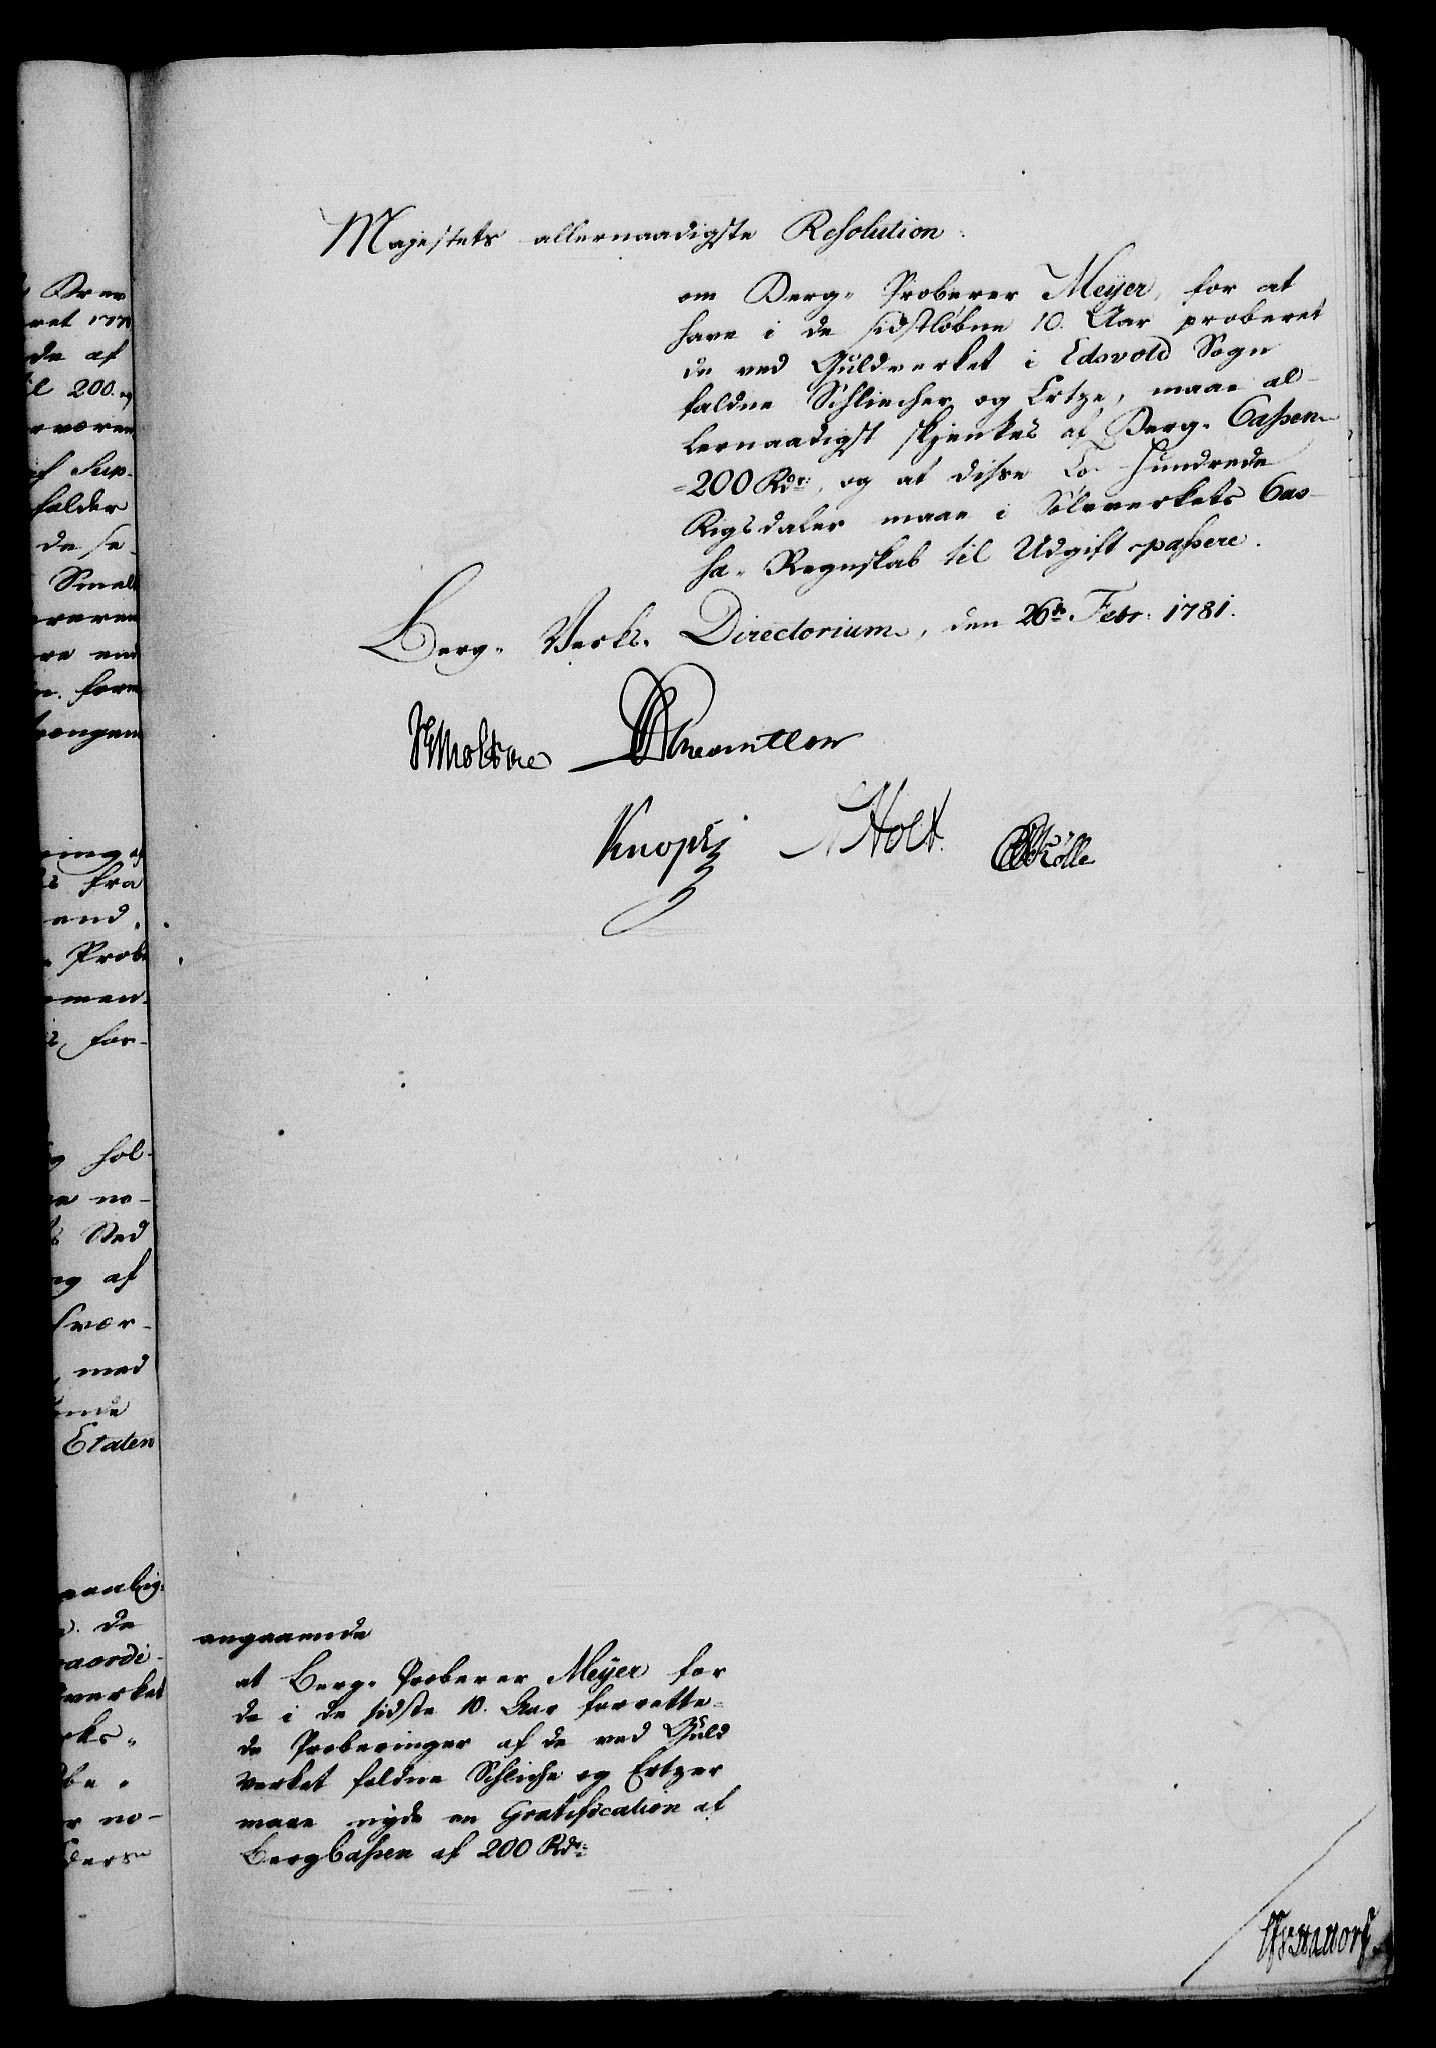 Majestets allernaadigste Resolution.
om Berg-Proberer Meÿer, for at
have i de sidstløbne 10. Aar proberet
de ved Guldverket i Edsvold Sogn
faldne Schliecher og Ertze, maae al-
lernaadigst skjenkes af Berg-Cassen
200 Rdr:, og at disse To Hundrede
Rigsdaler maae i Sølvverkets Cas-
sa-Regnskab til Udgift passere.
Berg-Verks-Directorium, den 26de Febr: 1781.
Moltke
Knoph Holt Kølle
ret 177
de af
til 200.
af Sup-
holder
de se-
Smelt
fra
Prob
for-
hol-
Sted
af
svær-
med
Etaten
de
verket
angaaende
at Berg-Proberer Meÿer for
de i de sidste 10. Aar forrette-
de Proberinger af de ved Guld
verket faldne Schliche og Ertzer
maae nyde en Gratification af
BergCassen af 200 Rdr: